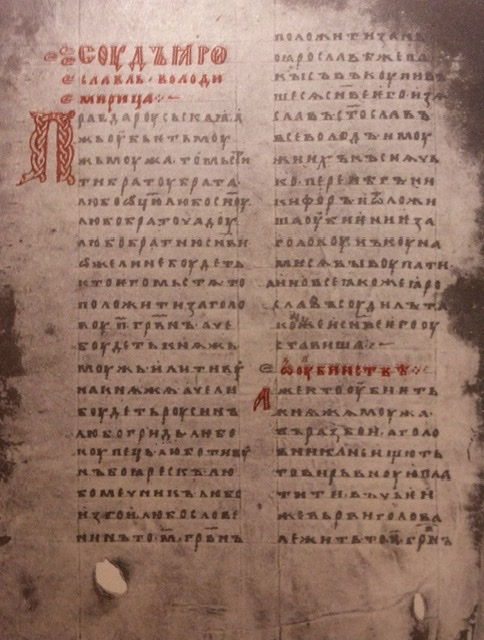 СОУДЪ ꙖРО
СЛАВЛЬ · ВОЛОДИ
МИРИЦА :·~
Правда роусьскаꙗ · а
жь оубьѥть моу
жь моужа · то мьсти
ти братоу брата ·
любо ѡц҃ю любо сн҃оу
любо братоучадоу
любо братню сн҃ви
ѡже ли не боудеть
кто ѥго мьстѧ то
положити за голо
воу · п҃ · грв҃нъ · аче
боудеть кнѧжь
моужь или тивоу
на кнѧжа · аче ли
боудеть роусинъ
любо гридь · любо
коупець · любо тивоу
нъ боꙗрескъ · лю
бо мечникъ · любо
изгои · любо слове
нинъ · то · м҃ · грв҃нъ
положити за нь ·
по ꙗрославѣ же па
кы съвъкоупивъ
шесѧ сн҃ве ѥго · изѧ
славъ · ст҃ославъ ·
всеволодъ · и моу
жи ихъ · къснѧчь
ко · перенѣгъ · ни
кифоръ · и ѿложи
ша оубиѥниѥ за
головоу · нъ коуна
ми сѧ выкоупати ·
а ино все ꙗкоже ꙗро
славъ соудилъ та
коже и сн҃ве ѥго оу
ставиша :·~
ѡ оубииствѣ :·
Аже кто оубиѥть
кнѧжа моужа ·
въ разбои · а голо
вника не ищють
то вирьвноую пла
тити · въ чьѥи
же вьрви голова
лежить то · п҃ · грв҃нъ